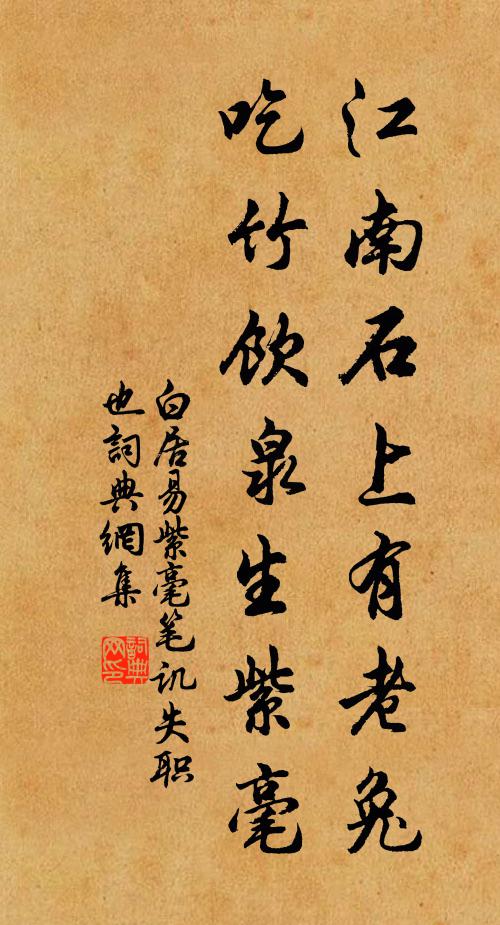 江南石上有老兔
吃竹饮泉生紫毫
白居易紫毫笔讥失职
也詞典網集
詞典
网印